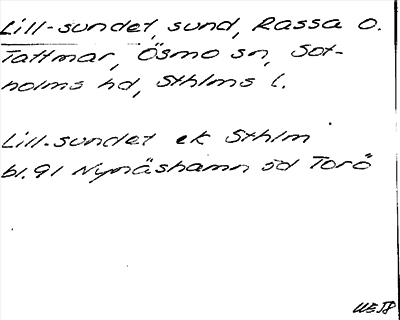 Lill-sundet, sund, Rassa O.
Tattmar, Ösmo sn, Sot-
holms hd, Sthlms l.
Lill-sundet ek Sthlm
bl. 91 Nynäshamn öd Torö
WE58